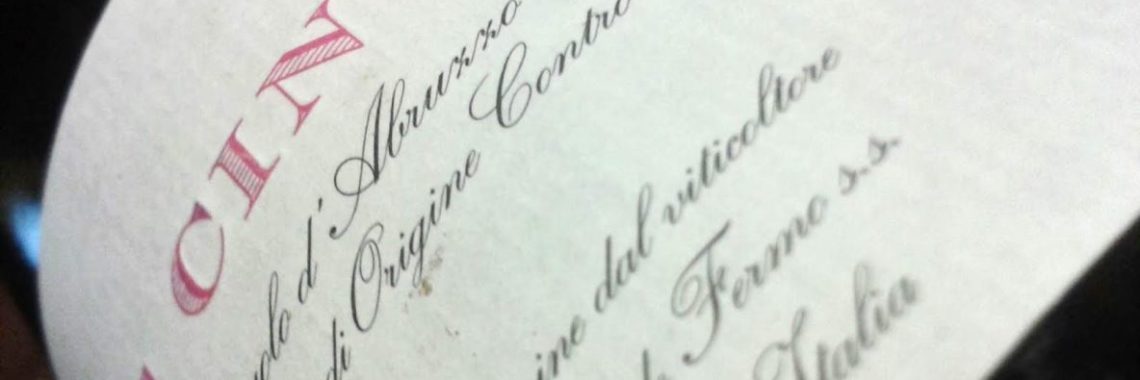 CIN
olo d'Abruzzo
di Origine Contro
ine dal viticoltore
Fermo s.s.
Italia